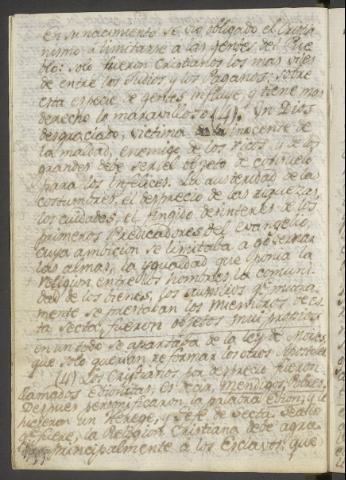 en su nacimiento se vio obligado el Cristia
nismo a limitarse a las gentes del Pue
blo: solo fueron Cristianos los mas viles
de entre los Judios y los Paganos; sobre
esta especie de gentes influye, y tiene mas
derecho lo maravilloso (4). Un Dios
desgraciado, victima inocente de
la maldad, enemigo de los ricos, y de los
grandes debe ser el objeto de consuelo
para los infelices. La austeridad de las
costumbres, el desprecio de las riquezas,
los cuidados, el fingido desinteres de los
primeros Predicadores del evangelio,
cuya ambicion se limitaba a governar
las almas, la ygualdad que ponia la
religion entre los hombres, la comuni
dad de los bienes, los auxilios que mutua
mente se prestaban los miembros de es
ta Secta, fueron objetos muy
en un todo se apartaba de la ley de Moises,
que solo querian reformar los otros Apostoles
(4) Los Cristianos por desprecio fueron
llamados Ebionitas, es decir, mendigos, Pobres.
Despues personificaron la palabra Ebion, y le
hicieron un Herege, y Gefe de Secta. Sea lo
que fuere, la Religion Cristiana debe agra
dar principalmente a los Esclavos, que